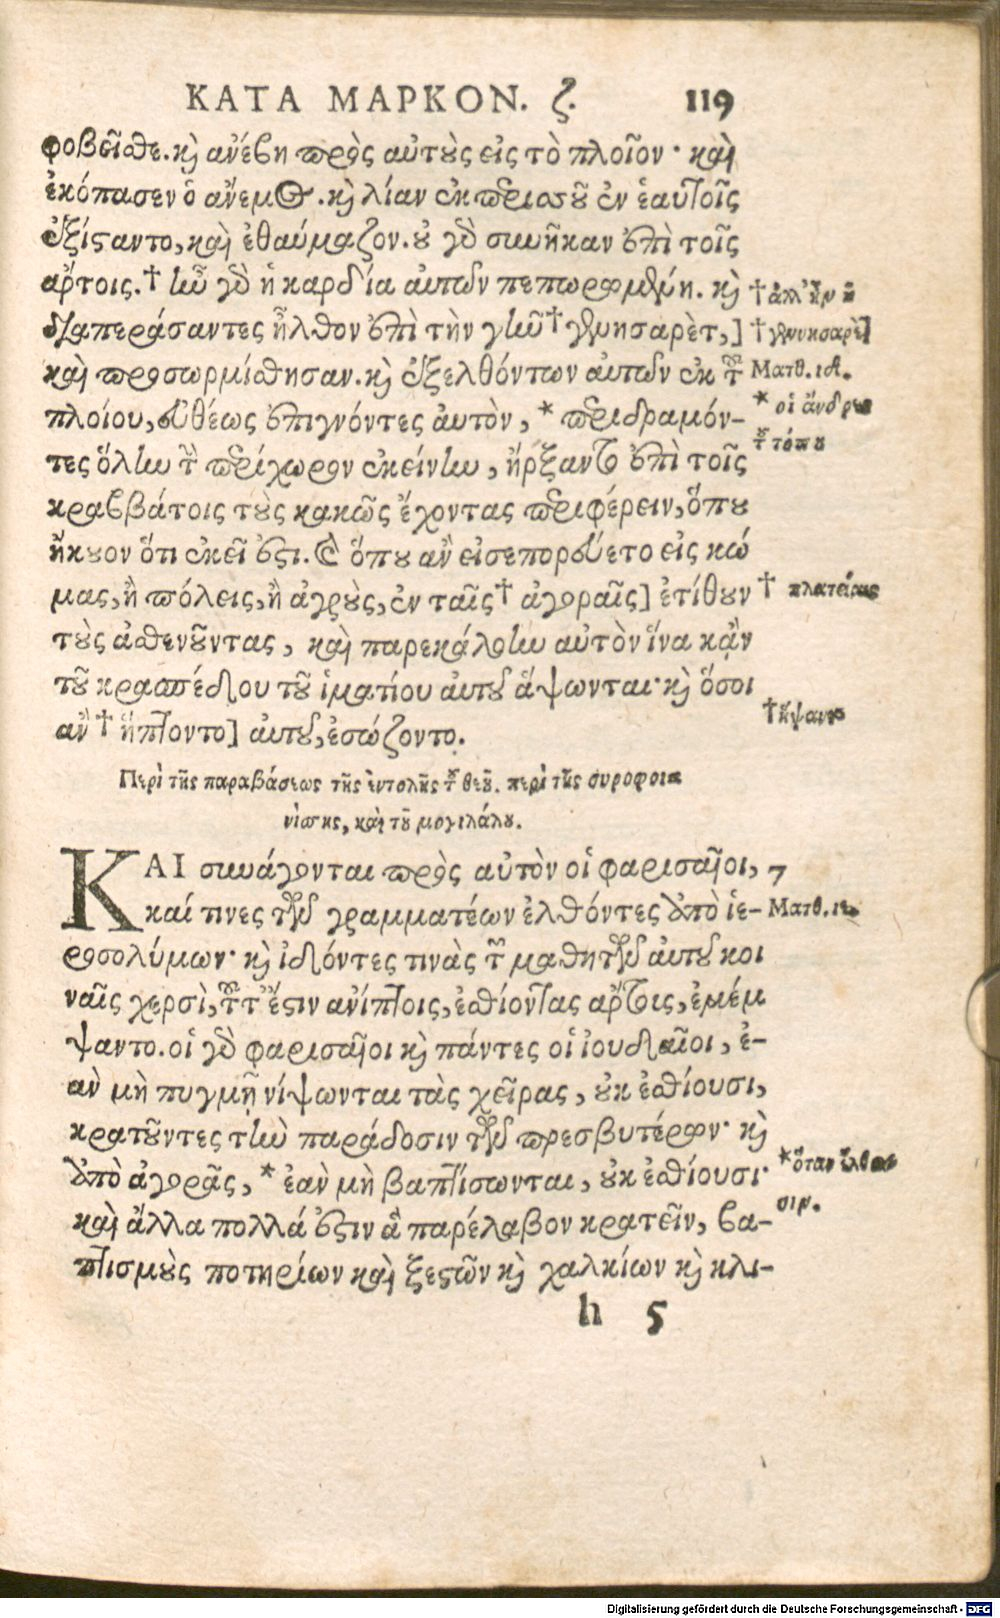 ΚΑΤΑ ΜΑΡΚΟΝ. ζ. 119
φοβεῖσθε. καὶ ἀνέβη πρὸς αὐτοὺς εἰς τὸ πλοῖον· καὶ
ἐκόπασεν ὁ ἄνεμος. καὶ λίαν ἐκ περισσοῦ ἐν ἑαυτοῖς
ἐξίσταντο, καὶ ἐθαύμαζον. οὐ γὰρ συνῆκαν ἐπὶ τοῖς
ἄρτοις. † ἦν γὰρ ἡ καρδία αὐτῶν πεπωρωμένη. καὶ
† ἀλλ' ἦν ἡ
διαπεράσαντες ἦλθον ἐπὶ τὴν γῆν † γεννησαρὲτ, ]
† γεννησαρὲτ]
καὶ προσωρμίσθησαν. καὶ ἐξελθόντων αὐτῶν ἐκ τοῦ
Ματθ. ιδ.
πλοίου, εὐθέως ἐπιγνόντες αὐτὸν, * περιδραμόν-
* οἱ ἄνδρες
τοῦ τόπου
τες ὅλην τὴν περίχωρον ἐκείνην, ἤρξαντο ἐπὶ τοῖς
κραββάτοις τοὺς κακῶς ἔχοντας περιφέρειν, ὅπου
ἤκουον ὅτι ἐκεῖ ἐστι. Καὶ ὅπου ἂν εἰσεπορεύετο εἰς κώ
μας, ἢ πόλεις, ἢ ἀγροὺς, ἐν ταῖς † ἀγοραῖς] ἐτίθουν
† πλατείαις
τοὺς ἀσθενοῦντας, καὶ παρεκάλουν αὐτὸν ἵνα κἂν
τοῦ κρασπέδου τοῦ ἱματίου αὐτοῦ ἅψωνται· καὶ ὅσοι
ἂν † ἥπτοντο] αὐτοῦ, ἐσώζοντο.
† ἥψαντο
Περὶ τῆς παραβάσεως τῆς ἐντολῆς τοῦ θεοῦ. περὶ τῆς συροφοι
νίσσης, καὶ τοῦ μογιλάλου.
ΚΑΙ συνάγονται πρὸς αὐτὸν οἱ φαρισαῖοι, 7
καί τινες τῶν γραμματέων ἐλθόντες ἀπὸ ἱε-
Ματθ. ιε.
ροσολύμων· καὶ ἰδόντες τινὰς τῶν μαθητῶν αὐτοῦ κοι
ναῖς χερσὶ, τοῦτ' ἔστιν ἀνίπτοις, ἐσθίοντας ἄρτους, ἐμέμ
ψαντο. οἱ γὰρ φαρισαῖοι καὶ πάντες οἱ ἰουδαῖοι, ἐ-
ὰν μὴ πυγμῇ νίψωνται τὰς χεῖρας, οὐκ ἐσθίουσι,
κρατοῦντες τὴν παράδοσιν τῶν πρεσβυτέρων· καὶ
ἀπὸ ἀγορᾶς, * ἐὰν μὴ βαπτίσωνται, οὐκ ἐσθίουσι·
* ὅταν ἔλθω
σιν.
καὶ ἄλλα πολλά ἐστιν ἃ παρέλαβον κρατεῖν, βα-
πτισμοὺς ποτηρίων καὶ ξεστῶν καὶ χαλκίων καὶ κλι-
h 5
Digitalisierung gefördert durch die Deutsche Forschungsgemeinschaft - DFG